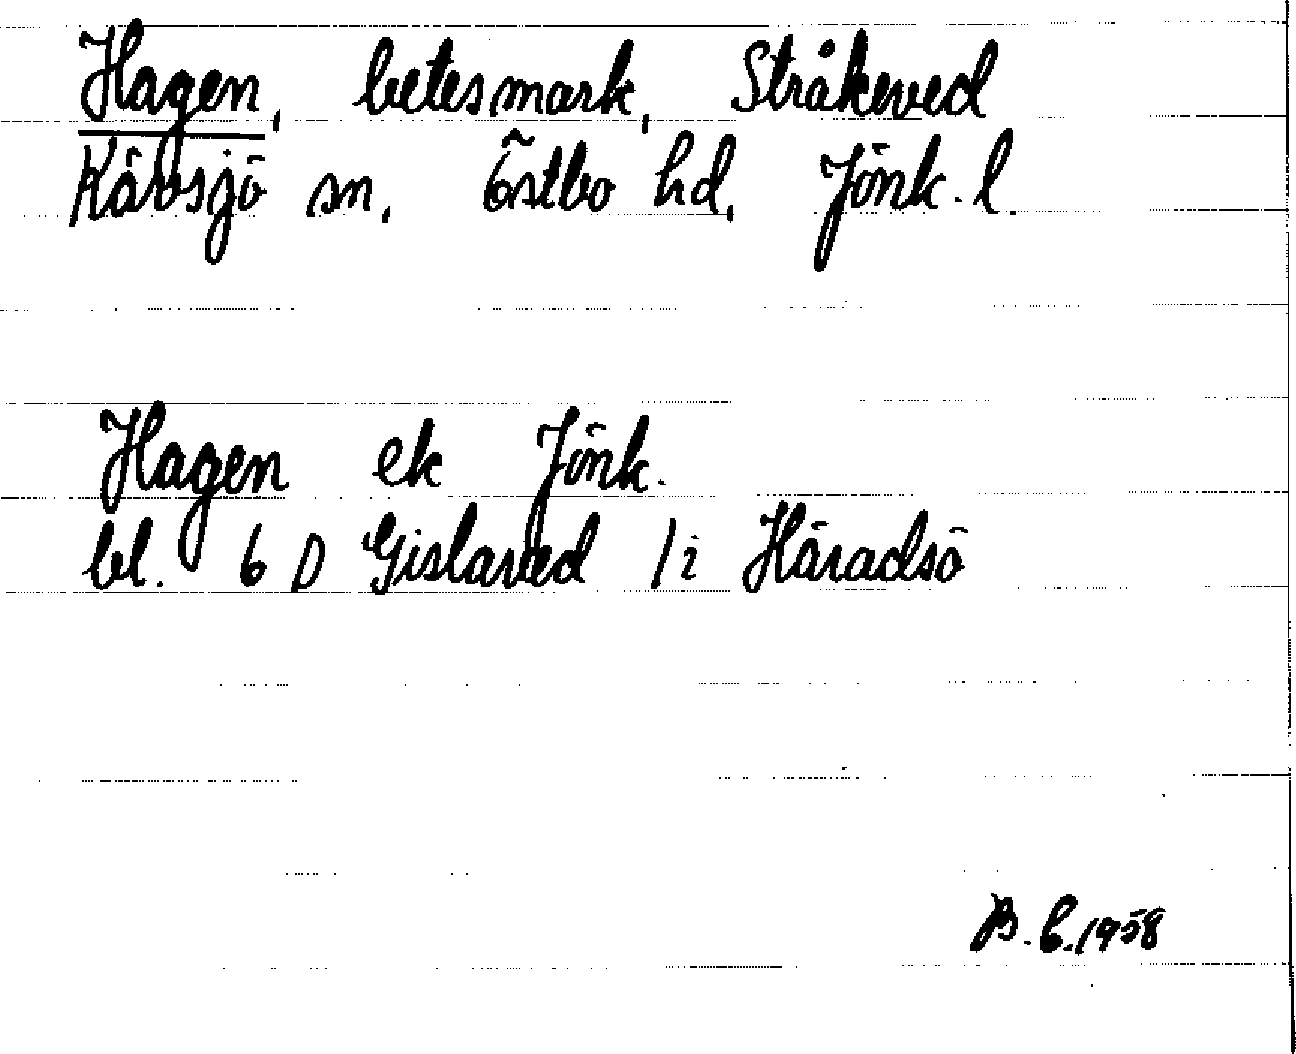 Hagen, betesmark, Stråkeved
Kävsjö sn, Östbo hd, Jönk. l.
Hagen ek Jönk.
bl. 6 D Gislaved 1 i Häradsö
B. C. 1958